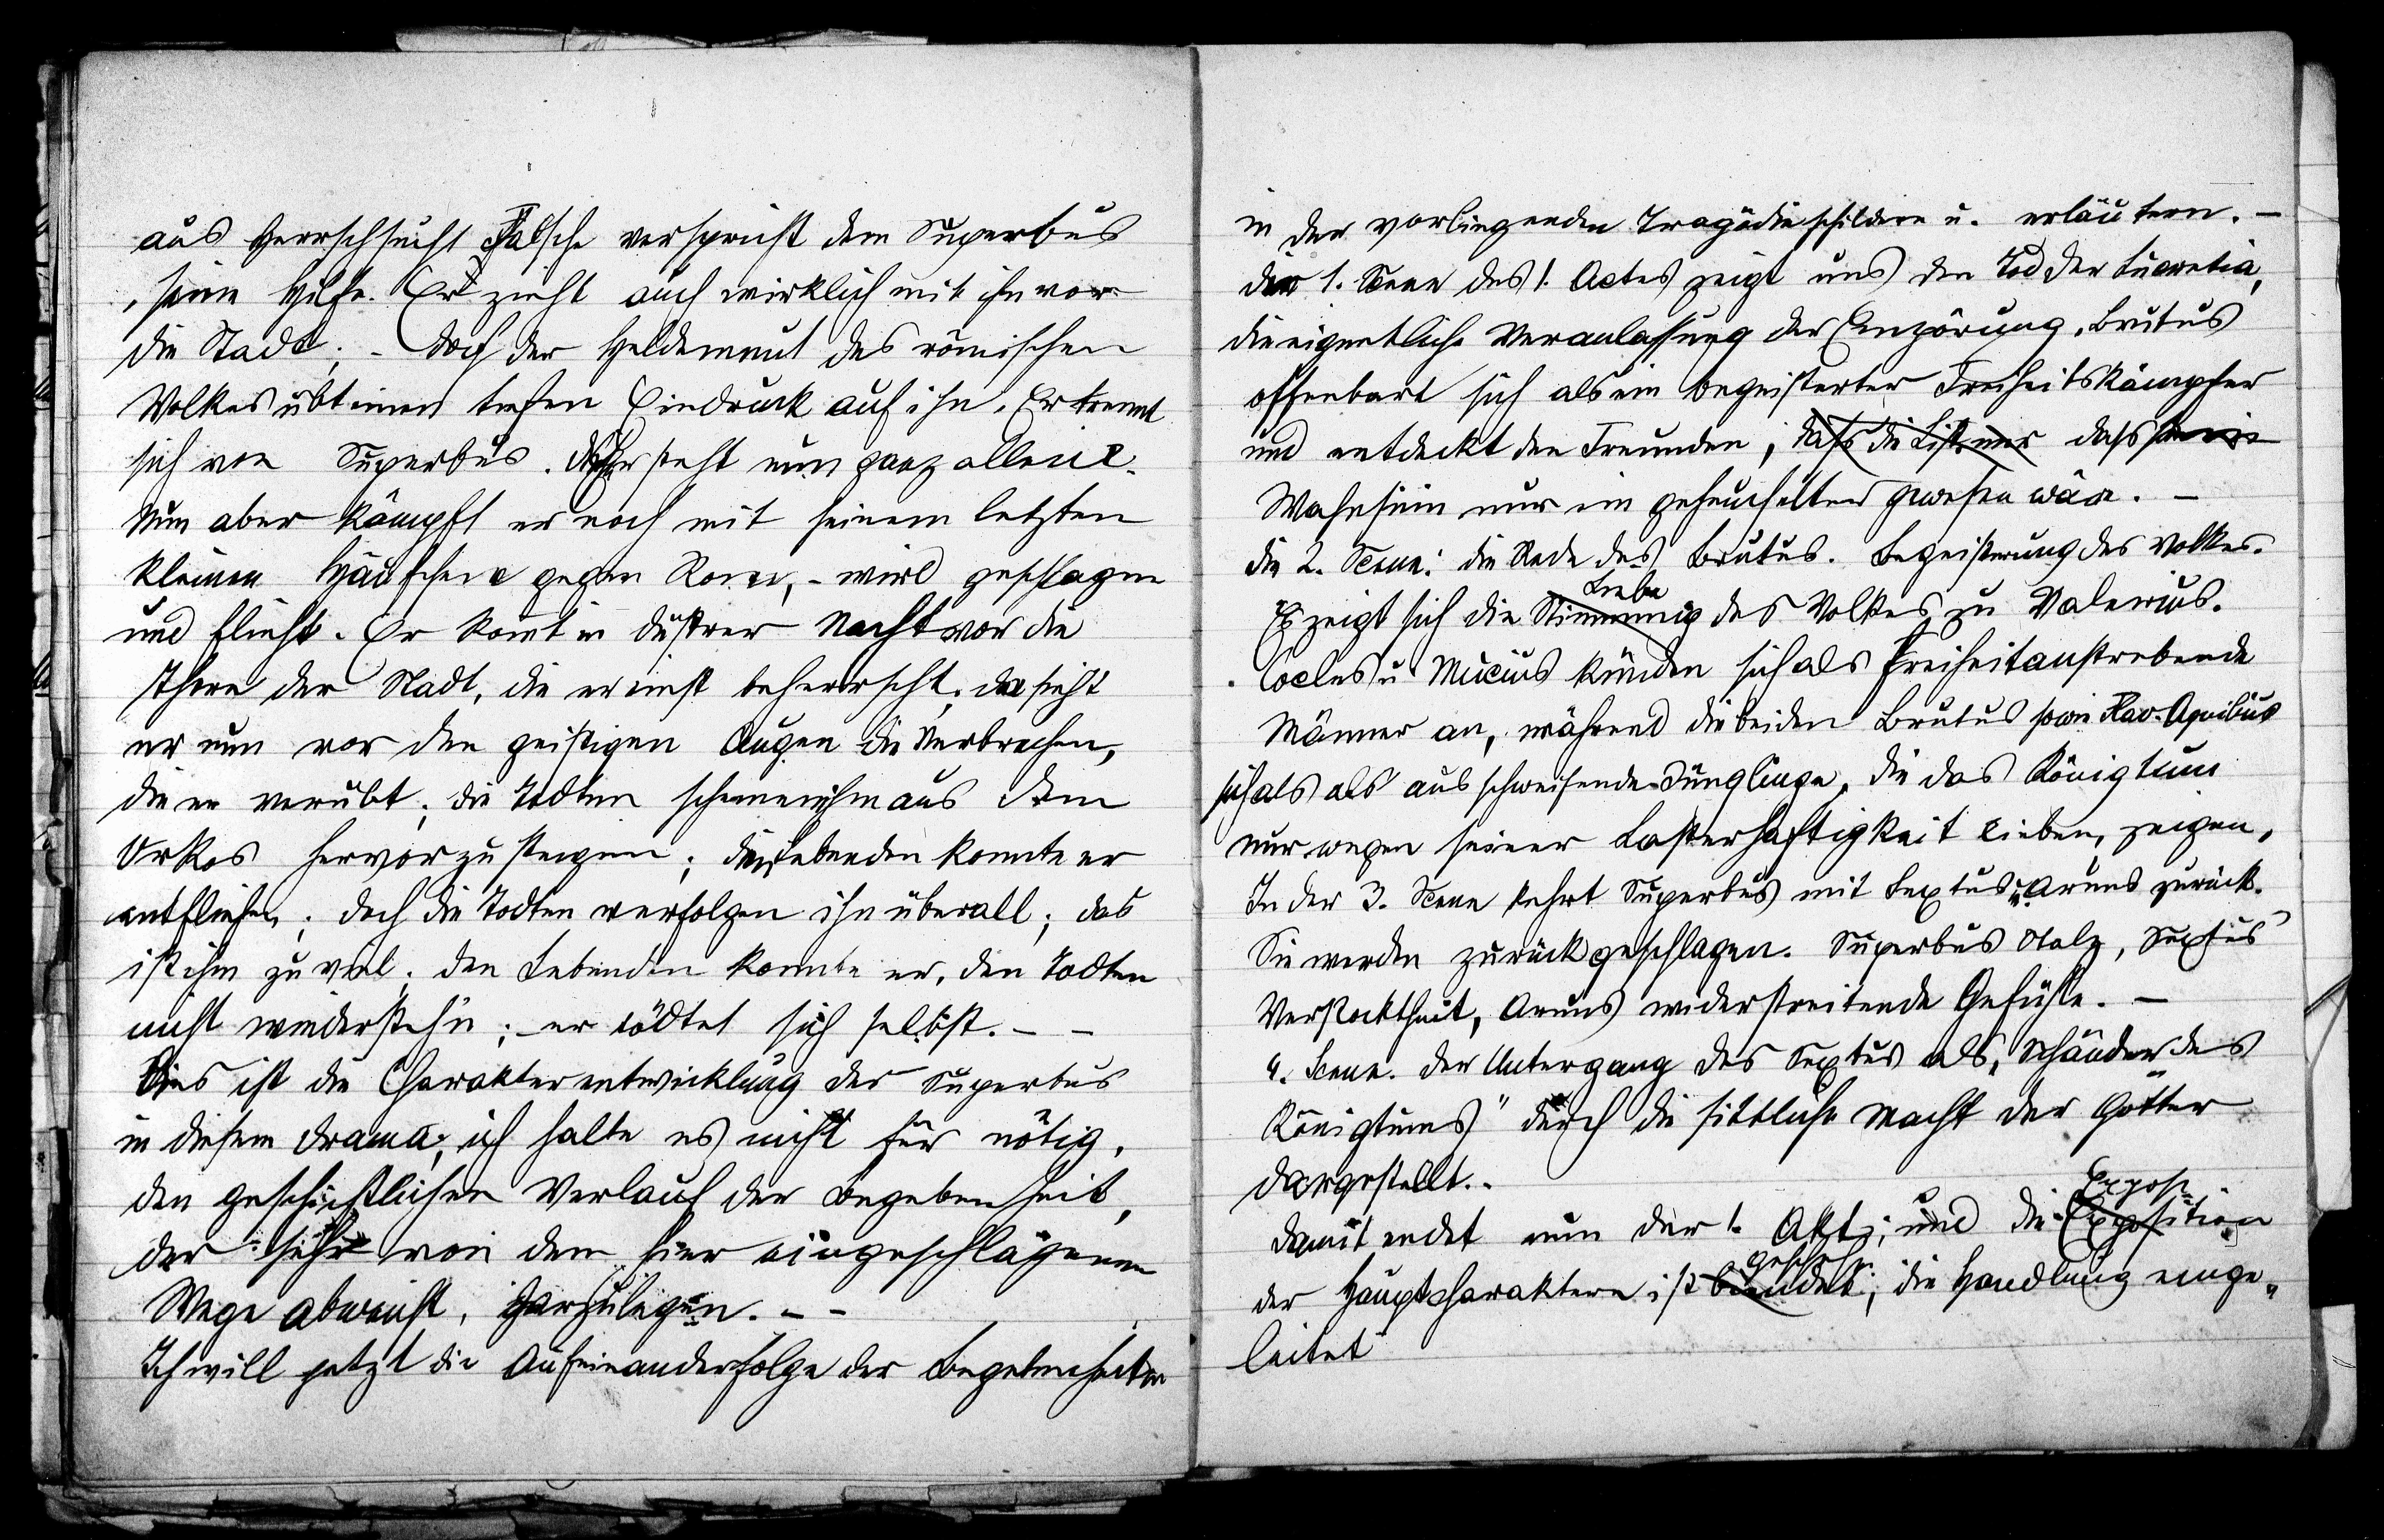 aus Herrschsucht Falsche verspricht dem Superbus
seine Hilfe. Er zieht auch wirklich mit ihm vor
die Stadt; - doch der Heldenmut des römischen
Volkes übt einen tiefen Eindruck auf ihn. Er trennt
sich von Superbus. Dieser steht nun ganz allein.
Nun aber kämpft er noch mit seinem letzten
kleinen Häufchen gegen Rom, - wird geschlagen
und flieht. Er komt in düstrer Nacht vor die
Thore der Stadt, die er einst beherrscht, da sieht
er nun vor den geistigen Augen die Verbrechen,
die er verübt; die Todten scheinen ihm aus dem
Orkos hervorzusteigen; den Lebenden konnte er
entfliehen; doch die Todten verfolgen ihn überall; das
ist ihm zu viel; den Lebenden konnte er, den Todten
nicht wiederstehn; - er tödtet sich selbst. - -
Dies ist die Charakterentwicklung des Superbus
in diesem Drama; ich halte es nicht für nötig,
den geschichtlichen Verlauf der Begebenheit,
der sehr von dem hier eingeschlagenen
Wege abweicht, darzulegen. - -
Ich will jetzt die Aufeinanderfolge der Begebenheiten
in der vorliegenden Tragödie schildern u. erläutern. -
die 1. Scene des 1. Actes zeigt uns den Tod der Lucretia,
die eigentliche Veranlassung der Empörung. Brutus
offenbart sich als ein begeisterter Freiheitskämpfer
und entdeckt den Freunden, dass die List nur dass sein
Wahnsinn nur ein geheuchelter gewesen wäre. -
Die 2. Scene: die Rede des Brutus. Begeisterung des Volkes.
Liebe
Es zeigt sich die Stimmung des Volkes zu Valerius.
Cocles u Mucius künden sich als Freiheitanstrebende
Männer an, während die beiden Brutus sowie Flav. Aquilius
sich als als ausschweifende Jünglinge, die das Königtum
nur wegen seiner Lasterhaftigkeit lieben, zeigen.
In der 3. Scene kehrt Superbus mit Sextus u. Aruns zurück.
Sie werden zurückgeschlagen. Superbus Stolz, Sextus
Verstocktheit, Aruns widerstreitende Gefühle. -
4. Scene. Der Untergang des Sextus als „Schänder des
Königtums" durch die sittliche Macht der Götter
dargestellt.
Exposi
Damit endet nun der 1. Akt; und die Exposition
gescheh
der Hauptcharaktere ist beendet; die Handlung einge„
leitet